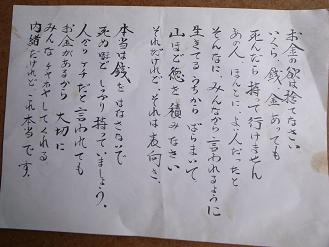 お金の欲は捨てなさい
いくら、銭、金あっても
死んだら持て行けません
あの人、ほんとに、よい人だったと
そんなに、みんなから言われるように
生きてるうちから ばらまいて
山ほど徳を積みなさい
それだけれど、それは表向き、
本当は銭をはなさないで
死ぬ迄 しっかり持っていましょう、
人から ケチだと言われても
お金があるから 大切に
みんなチヤホヤしてくれる
内緒だけれど、これ本当です。